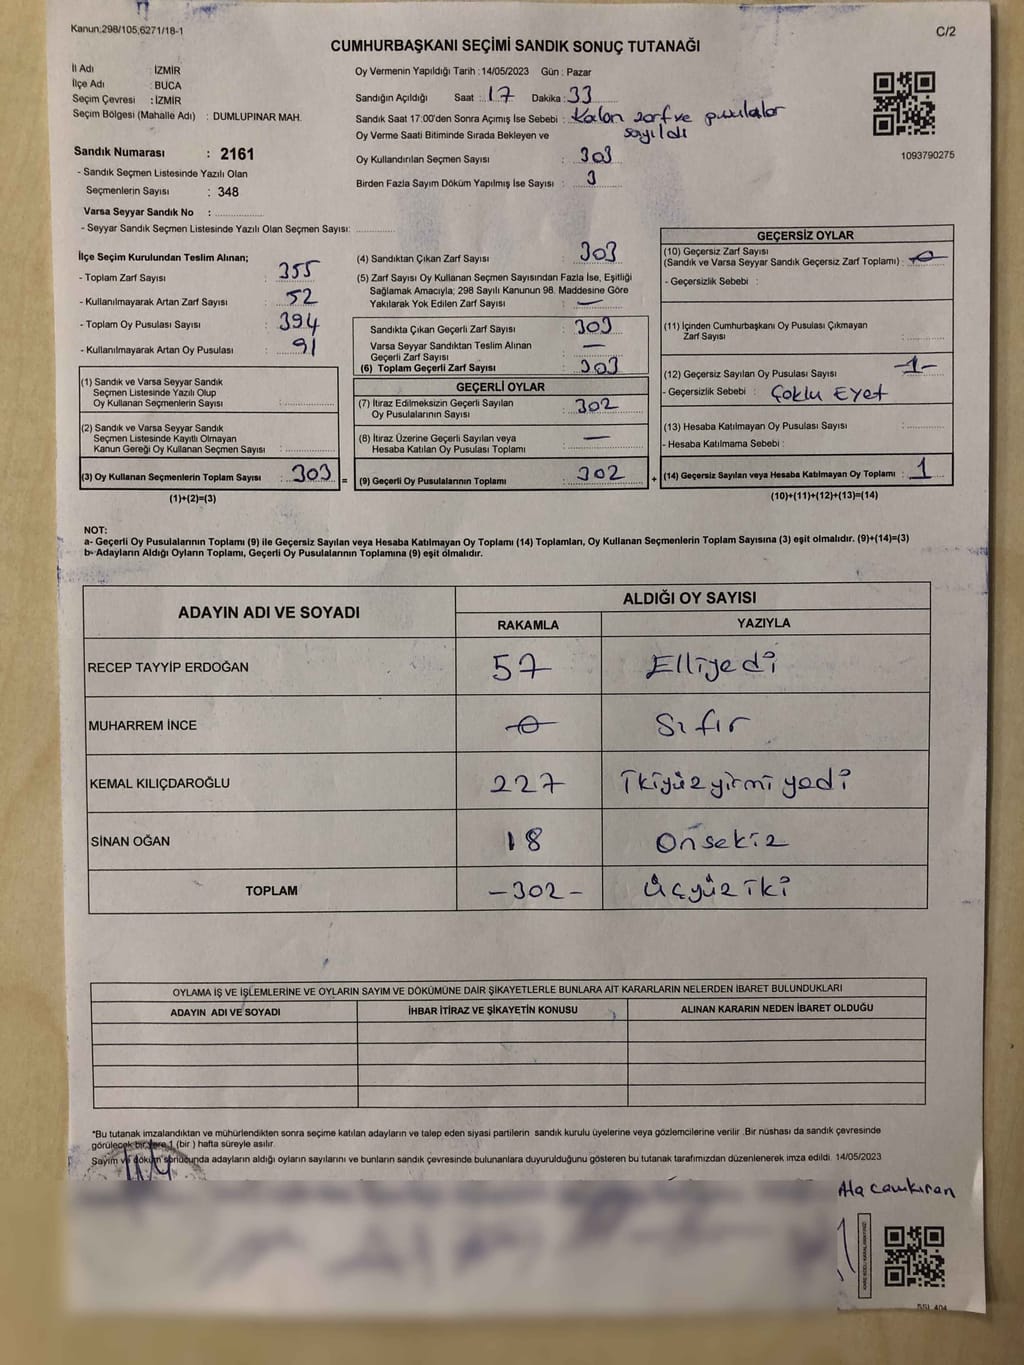 Kanun:298/105,6271/18-1
C/2
CUMHURBAŞKANI SEÇİMİ SANDIK SONUÇ TUTANAĞI
İl Adı : İZMİR
İlçe Adı : BUCA
Seçim Çevresi : İZMİR
Seçim Bölgesi (Mahalle Adı) : DUMLUPINAR MAH.
Sandık Numarası : 2161
- Sandık Seçmen Listesinde Yazılı Olan
Seçmenlerin Sayısı : 348
Varsa Seyyar Sandık No :
- Seyyar Sandık Seçmen Listesinde Yazılı Olan Seçmen Sayısı:
Oy Vermenin Yapıldığı Tarih : 14/05/2023 Gün : Pazar
Sandığın Açıldığı Saat : 17 Dakika : 33
Sandık Saat 17:00'den Sonra Açımış İse Sebebi : Kalan zarf ve pusulalar
sayıldı
Oy Verme Saati Bitiminde Sırada Bekleyen ve
Oy Kullandırılan Seçmen Sayısı : 303
Birden Fazla Sayım Döküm Yapılmış İse Sayısı : 3
1093790275
İlçe Seçim Kurulundan Teslim Alınan;
- Toplam Zarf Sayısı : 355
- Kullanılmayarak Artan Zarf Sayısı : 52
- Toplam Oy Pusulası Sayısı : 394
- Kullanılmayarak Artan Oy Pusulası : 91
(1) Sandık ve Varsa Seyyar Sandık
Seçmen Listesinde Yazılı Olup
Oy Kullanan Seçmenlerin Sayısı :
(2) Sandık ve Varsa Seyyar Sandık
Seçmen Listesinde Kayıtlı Olmayan
Kanun Gereği Oy Kullanan Seçmen Sayısı :
(3) Oy Kullanan Seçmenlerin Toplam Sayısı : 303 =
(1)+(2)=(3)
(4) Sandıktan Çıkan Zarf Sayısı : 303
(5) Zarf Sayısı Oy Kullanan Seçmen Sayısından Fazla İse, Eşitliği
Sağlamak Amacıyla; 298 Sayılı Kanunun 98. Maddesine Göre
Yakılarak Yok Edilen Zarf Sayısı : —
Sandıkta Çıkan Geçerli Zarf Sayısı : 303
Varsa Seyyar Sandıktan Teslim Alınan
Geçerli Zarf Sayısı : —
(6) Toplam Geçerli Zarf Sayısı : 303
GEÇERLİ OYLAR
(7) İtiraz Edilmeksizin Geçerli Sayılan
Oy Pusulalarının Sayısı : 302
(8) İtiraz Üzerine Geçerli Sayılan veya
Hesaba Katılan Oy Pusulası Toplamı : —
(9) Geçerli Oy Pusulalarının Toplamı : 302 +
GEÇERSİZ OYLAR
(10) Geçersiz Zarf Sayısı
(Sandık ve Varsa Seyyar Sandık Geçersiz Zarf Toplamı) : 0
- Geçersizlik Sebebi :
(11) İçinden Cumhurbaşkanı Oy Pusulası Çıkmayan
Zarf Sayısı :
(12) Geçersiz Sayılan Oy Pusulası Sayısı : -1-
- Geçersizlik Sebebi : Çoklu Evet
(13) Hesaba Katılmayan Oy Pusulası Sayısı :
- Hesaba Katılmama Sebebi :
(14) Geçersiz Sayılan veya Hesaba Katılmayan Oy Toplamı : 1
(10)+(11)+(12)+(13)=(14)
NOT:
a- Geçerli Oy Pusulalarının Toplamı (9) ile Geçersiz Sayılan veya Hesaba Katılmayan Oy Toplamı (14) Toplamları, Oy Kullanan Seçmenlerin Toplam Sayısına (3) eşit olmalıdır. (9)+(14)=(3)
b- Adayların Aldığı Oyların Toplamı, Geçerli Oy Pusulalarının Toplamına (9) eşit olmalıdır.
ADAYIN ADI VE SOYADI ALDIĞI OY SAYISI
RAKAMLA YAZIYLA
RECEP TAYYİP ERDOĞAN 57 Elliyedi
MUHARREM İNCE 0 Sıfır
KEMAL KILIÇDAROĞLU 227 İkiyüzyirmiyedi
SİNAN OĞAN 18 Onsekiz
TOPLAM -302- Üçyüziki
OYLAMA İŞ VE İŞLEMLERİNE VE OYLARIN SAYIM VE DÖKÜMÜNE DAİR ŞİKAYETLERLE BUNLARA AİT KARARLARIN NELERDEN İBARET BULUNDUKLARI
ADAYIN ADI VE SOYADI İHBAR İTİRAZ VE ŞİKAYETİN KONUSU ALINAN KARARIN NEDEN İBARET OLDUĞU
*Bu tutanak imzalandıktan ve mühürlendikten sonra seçime katılan adayların ve talep eden siyasi partilerin sandık kurulu üyelerine veya gözlemcilerine verilir .Bir nüshası da sandık çevresinde
görülecek bir yere 1 (bir ) hafta süreyle asılır.
Sayım ve döküm sonucunda adayların aldığı oyların sayılarını ve bunların sandık çevresinde bulunanlara duyurulduğunu gösteren bu tutanak tarafımızdan düzenlenerek imza edildi. 14/05/2023